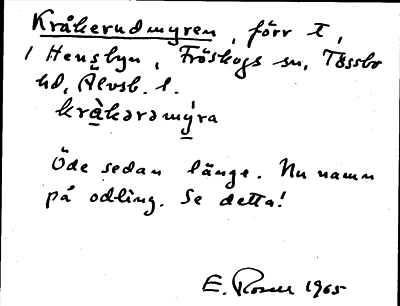 Kråkerudmyren, förr t,
i Hensbyn, Fröskogs sn, Tössbo
hd, Älvsb. l.
kràkərəmýra
Öde sedan länge. Nu namn
på odling. Se detta!
E. Rosen 1965